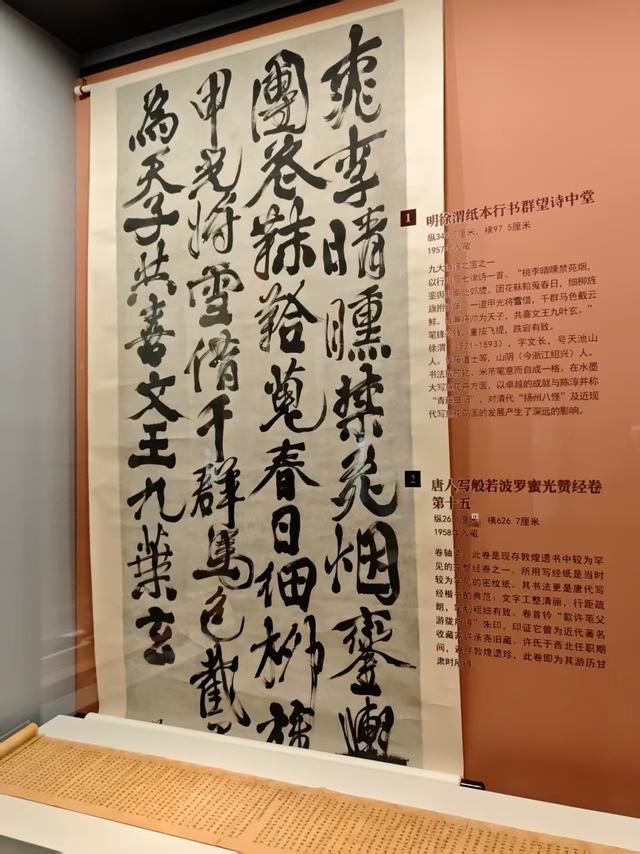 桃李晴曛禁苑烟銮輿
團花靺鞈蒐春日细柳旌
甲光将雪借千群馬色截
為天子共喜文王九葉玄
1
明徐渭纸本行书群望诗中堂
厘米,横97.5厘米
1957年入藏
九大镇馆之宝之一
以行书写七律诗一首。“桃李晴曛禁苑烟,
銮舆 高北郊壖。团花靺鞈蒐春日,细柳旌
旗拥 年。一道甲光将雪借,千群马色截云
鲜。 将帅为天子,共喜文王九叶玄。”
笔锋 锋,重按飞提,跌宕有致。
徐渭(1521-1593),字文长,号天池山
人、青藤道士等,山阴(今浙江绍兴)人。
书法取苏轼、米芾笔意而自成一格。在水墨
大写意花卉方面,以卓越的成就与陈淳并称
“青藤白阳”,对清代“扬州八怪”及近现
代写意花鸟画的发展产生了深远的影响。
2
唐人写般若波罗蜜光赞经卷
第十五
厘米,横626.7厘米
1958年入藏
卷轴装。此卷是现存敦煌遗书中较为罕
见的完整经卷之一。所用写经纸是当时
较为罕见的密纹纸。其书法更是唐代写
经楷书的典范:文字工整清丽,行距疏
朗,笔划粗细有致。卷首钤“歙许芚父
游陇所得”朱印,印证它曾为近代著名
收藏家许承尧旧藏。许氏于西北任职期
间,遍寻敦煌遗珍,此卷即为其游历甘
肃时所得。